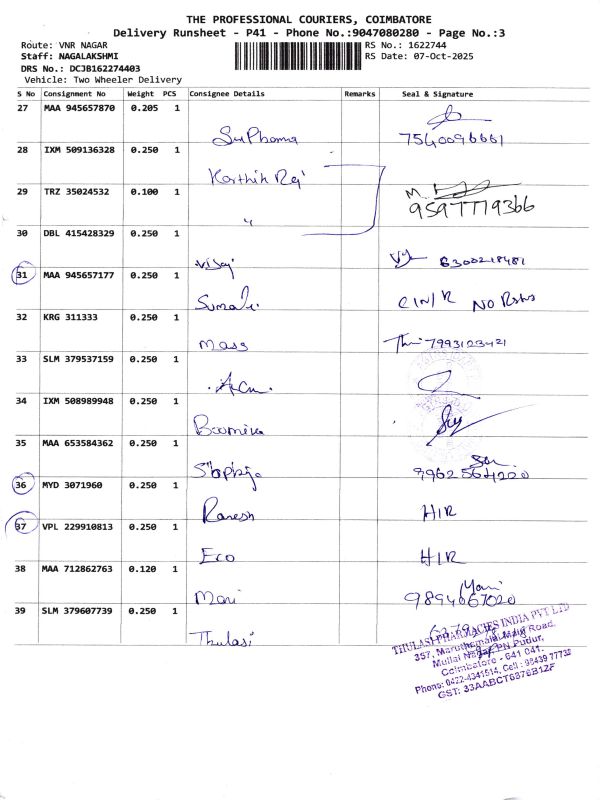 THE PROFESSIONAL COURIERS, COIMBATORE
Delivery Runsheet - P41 - Phone No.:9047080280 - Page No.:3
Route: VNR NAGAR RS No.: 1622744
Staff: NAGALAKSHMI RS Date: 07-Oct-2025
DRS No.: DCJB162274403
Vehicle: Two Wheeler Delivery
S No Consignment No Weight PCS Consignee Details Remarks Seal & Signature
27 MAA 945657870 0.205 1
7540096661
28 IXM 509136328 0.250 1
Karthik Raj
29 TRZ 35024532 0.100 1
"
30 DBL 415428329 0.250 1
Vijay 6300218481
31 MAA 945657177 0.250 1
32 KRG 311333 0.250 1
Mass 7993123421
33 SLM 379537159 0.250 1
34 IXM 508989948 0.250 1
Boomika
35 MAA 653584362 0.250 1
36 MYD 3071960 0.250 1
Ramesh HIR
37 VPL 229910813 0.250 1
Eco HIR
38 MAA 712862763 0.120 1
Mari Mari
9894067020
39 SLM 379607739 0.250 1
Thulasi
THULASI PHARMACIES INDIA PVT LTD
357, Maruthamalai Main Road,
Mullai Nagar, PN Pudur,
Coimbatore - 641 041.
Phone: 0422-4341514, Cell : 98439 77733
GST: 33AABCT6376B1ZF